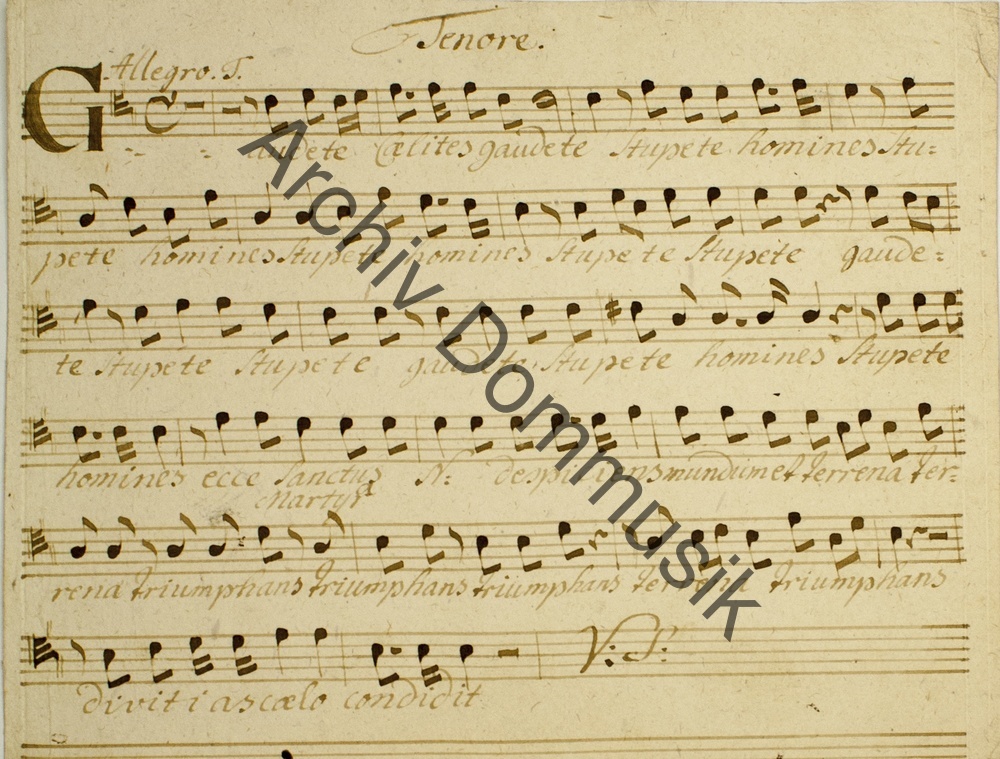 Tenore.
Allegro. T.
Gaudete Cælites gaudete Stupete homines Stu=
pete homines Stupete homines Stupete Stupete gaude=
te Stupete Stupete gaudete Stupete homines Stupete
homines ecce Sanctus N: despiciens mundum et terrena ter=
Martyr
rena triumphans triumphans triumphans terrena triumphans
V: S:
divitias cælo condidit
Archiv Dommusik